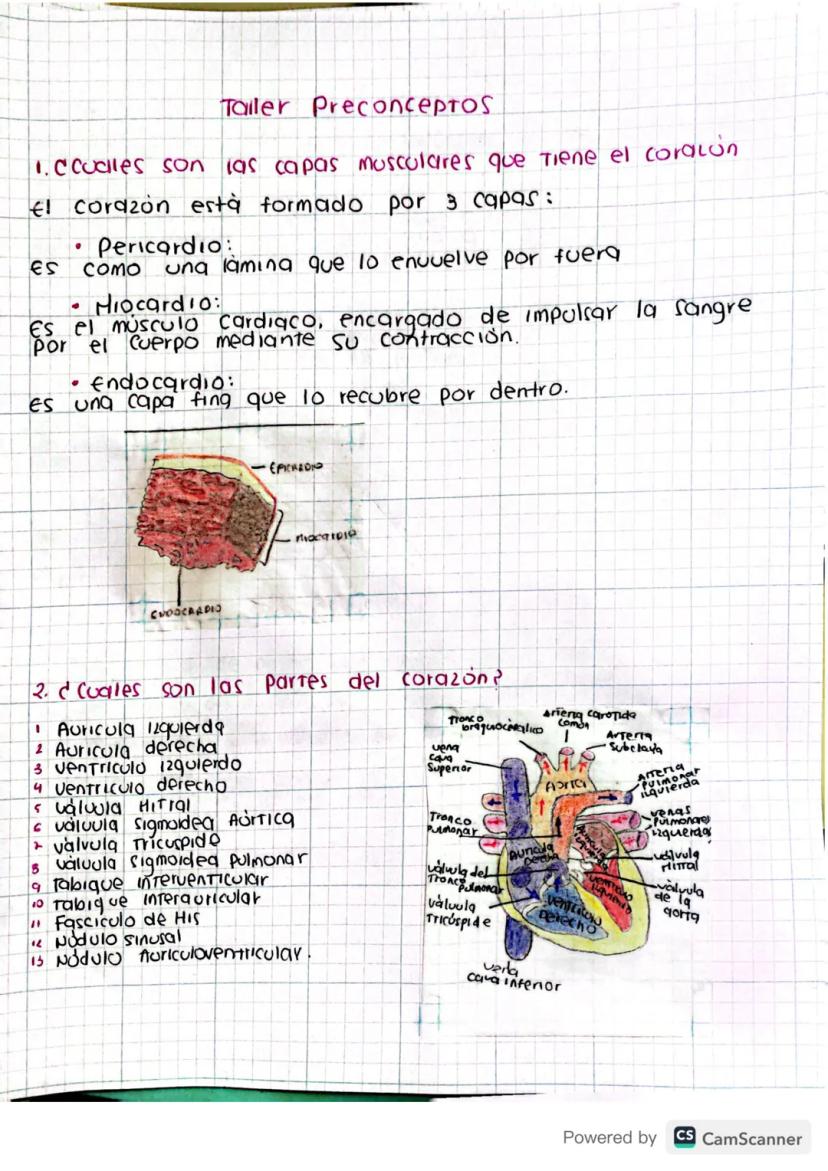 Taller Preconceptos
1. ¿Cuales son las capas musculares que tiene el corazón
El corazón está formado por 3 capas:
• Pericardio:
Es como una lámina que lo envuelve por fuera
• Miocardio:
Es el músculo cardiaco, encargado de impulsar la sangre
por el cuerpo mediante su contracción.
• Endocardio:
Es una capa fina que lo recubre por dentro.
Epicardio
Miocardio
Endocardio
2. ¿Cuales son las partes del corazón?
1 Auricula izquierda
2 Auricula derecha
3 ventriculo izquierdo
4 ventriculo derecho
5 válvula Mitral
6 válvula sigmoidea Aórtica
7 válvula tricuspide
8 válvula sigmoidea pulmonar
9 Tabique interventicular
10 Tabique interauricular
11 Fasciculo de His
12 Nódulo sinusal
13 Nódulo Auriculoventricular.
Tronco
braquiocefalico
Arteria carotida
común
Arteria
Subclavia
vena
cava
Superior
Aorta
Arteria
pulmonar
izquierda
Tronco
Pulmonar
venas
Pulmonares
izquierdas
Auricula
derecha
Auricula
izquierda
válvula
Mitral
válvula del
Tronco
pulmonar
ventriculo
izquierdo
válvula
de la
aorta
válvula
Tricúspide
ventriculo
Derecho
vena
cava inferior
Powered by CS CamScanner